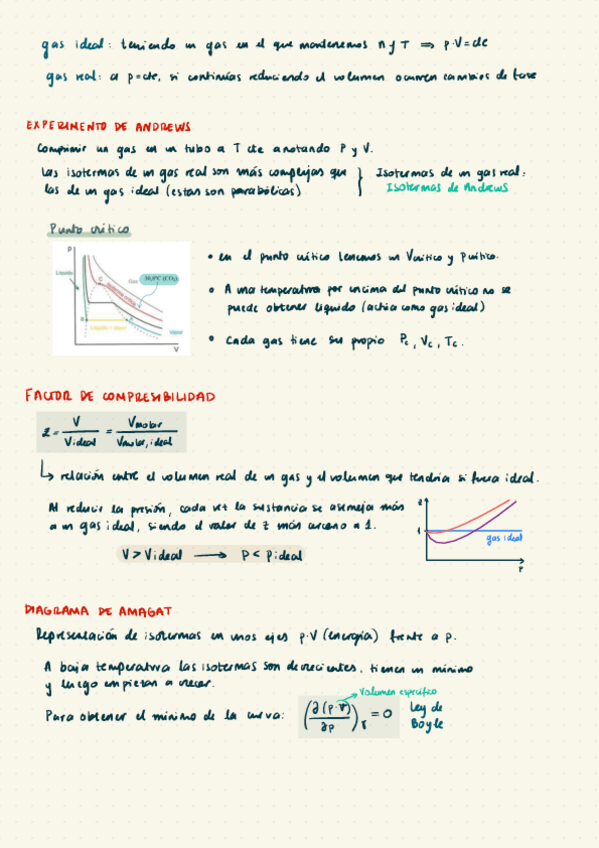 gas ideal: teniendo un gas en el que mantenemos n y T ⇒ p·V=cte
gas real: a p=cte, si continúas reduciendo el volumen ocurren cambios de fase
EXPERIMENTO DE ANDREWS
Comprimir un gas en un tubo a T cte anotando P y V.
Las isotermas de un gas real son más complejas que
las de un gas ideal (estas son parabólicas)
Isotermas de un gas real:
Isotermas de Andrews
Punto crítico
P
Líquido
Gas
C
Isoterma crítica
Líquido + vapor
Vapor
V
• en el punto crítico tenemos un Vcrítico y Pcrítico.
• A una temperatura por encima del punto crítico no se
puede obtener líquido (actúa como gas ideal)
• Cada gas tiene su propio Pc, Vc, Tc.
FACTOR DE COMPRESIBILIDAD
z = V / Videal = Vmolar / Vmolar, ideal
↳ relación entre el volumen real de un gas y el volumen que tendría si fuera ideal.
Al reducir la presión, cada vez la sustancia se asemeja más
a un gas ideal, siendo el valor de z más cercano a 1.
V > Videal → P < Pideal
z
1
gas ideal
P
DIAGRAMA DE AMAGAT
Representación de isotermas en unos ejes p·V (energía) frente a p.
A baja temperatura las isotermas son decrecientes, tienen un mínimo
y luego empiezan a crecer.
Volumen específico
Para obtener el mínimo de la curva: (∂(p·v)/∂p)T = 0 Ley de
Boyle